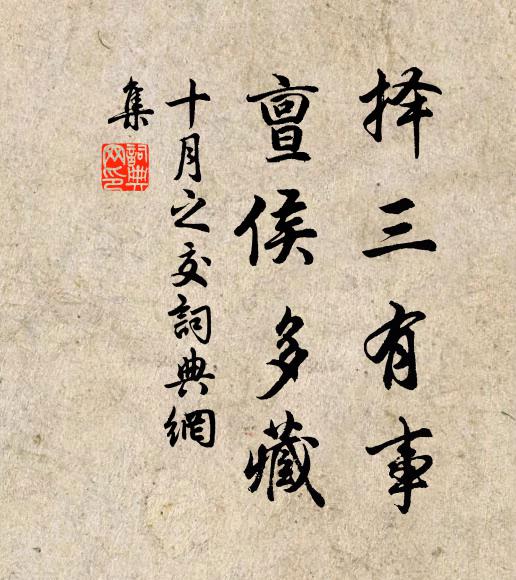 择三有事
亶侯多藏
十月之交詞典網
集
詞典
网印